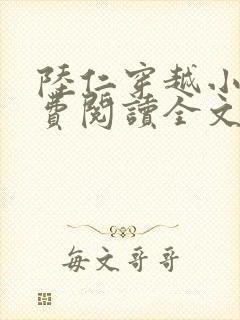 陸仁穿越小
費閱讀全文
每文哥哥